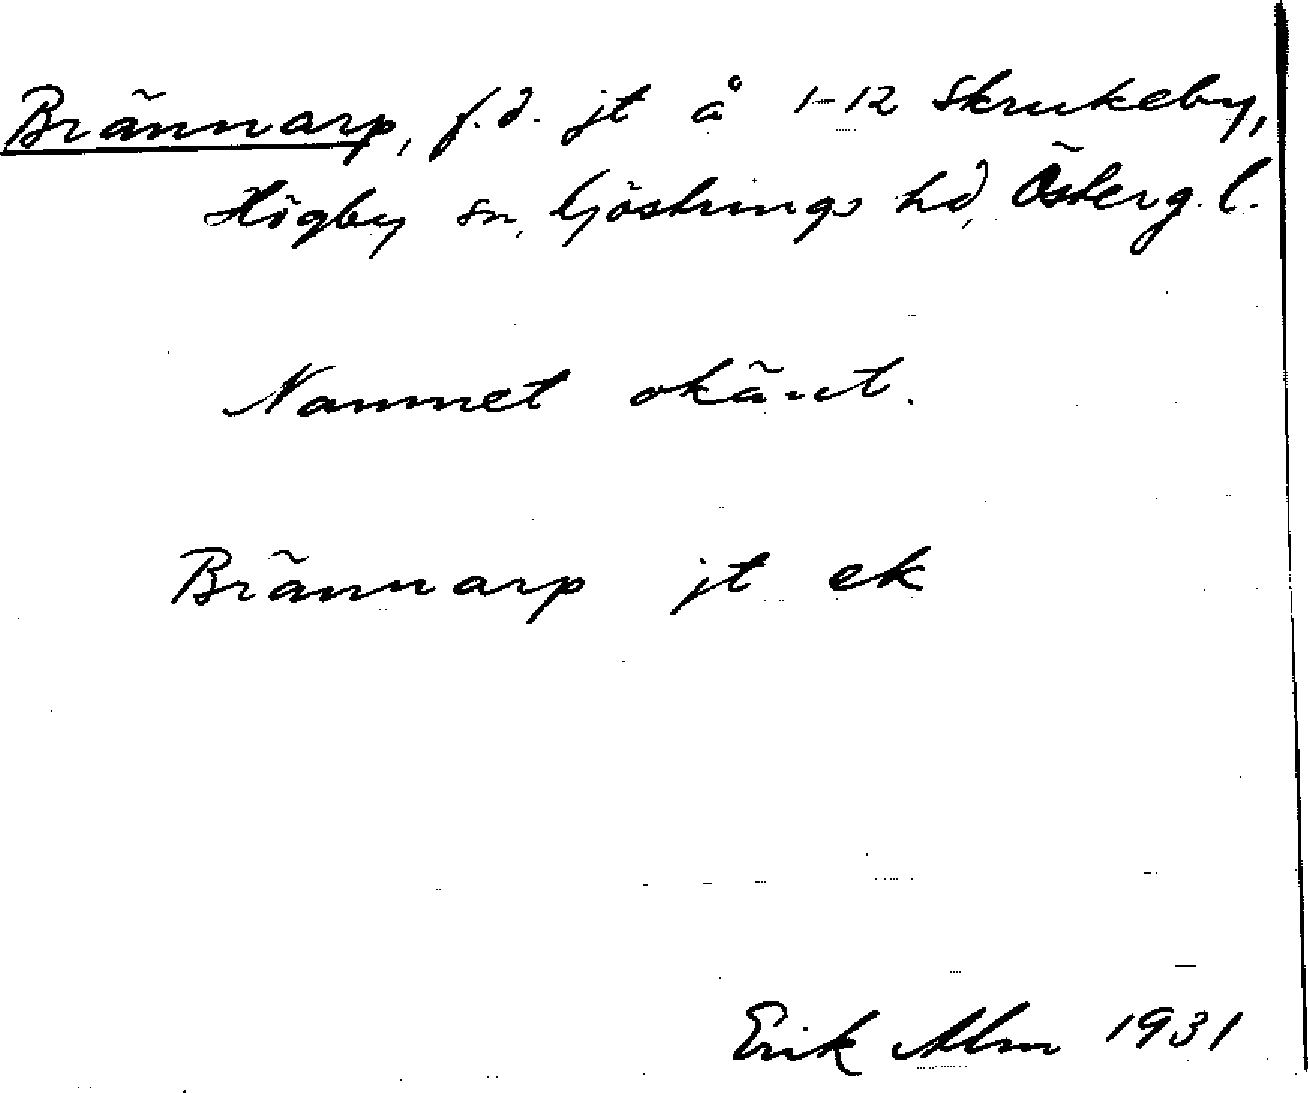 Brännarp, f.d. jt å 1-12 Skrukeby,
Högby sn, Göstrings hd, Österg. l.
Namnet okänt.
Brännarp jt ek
Erik Alm 1931